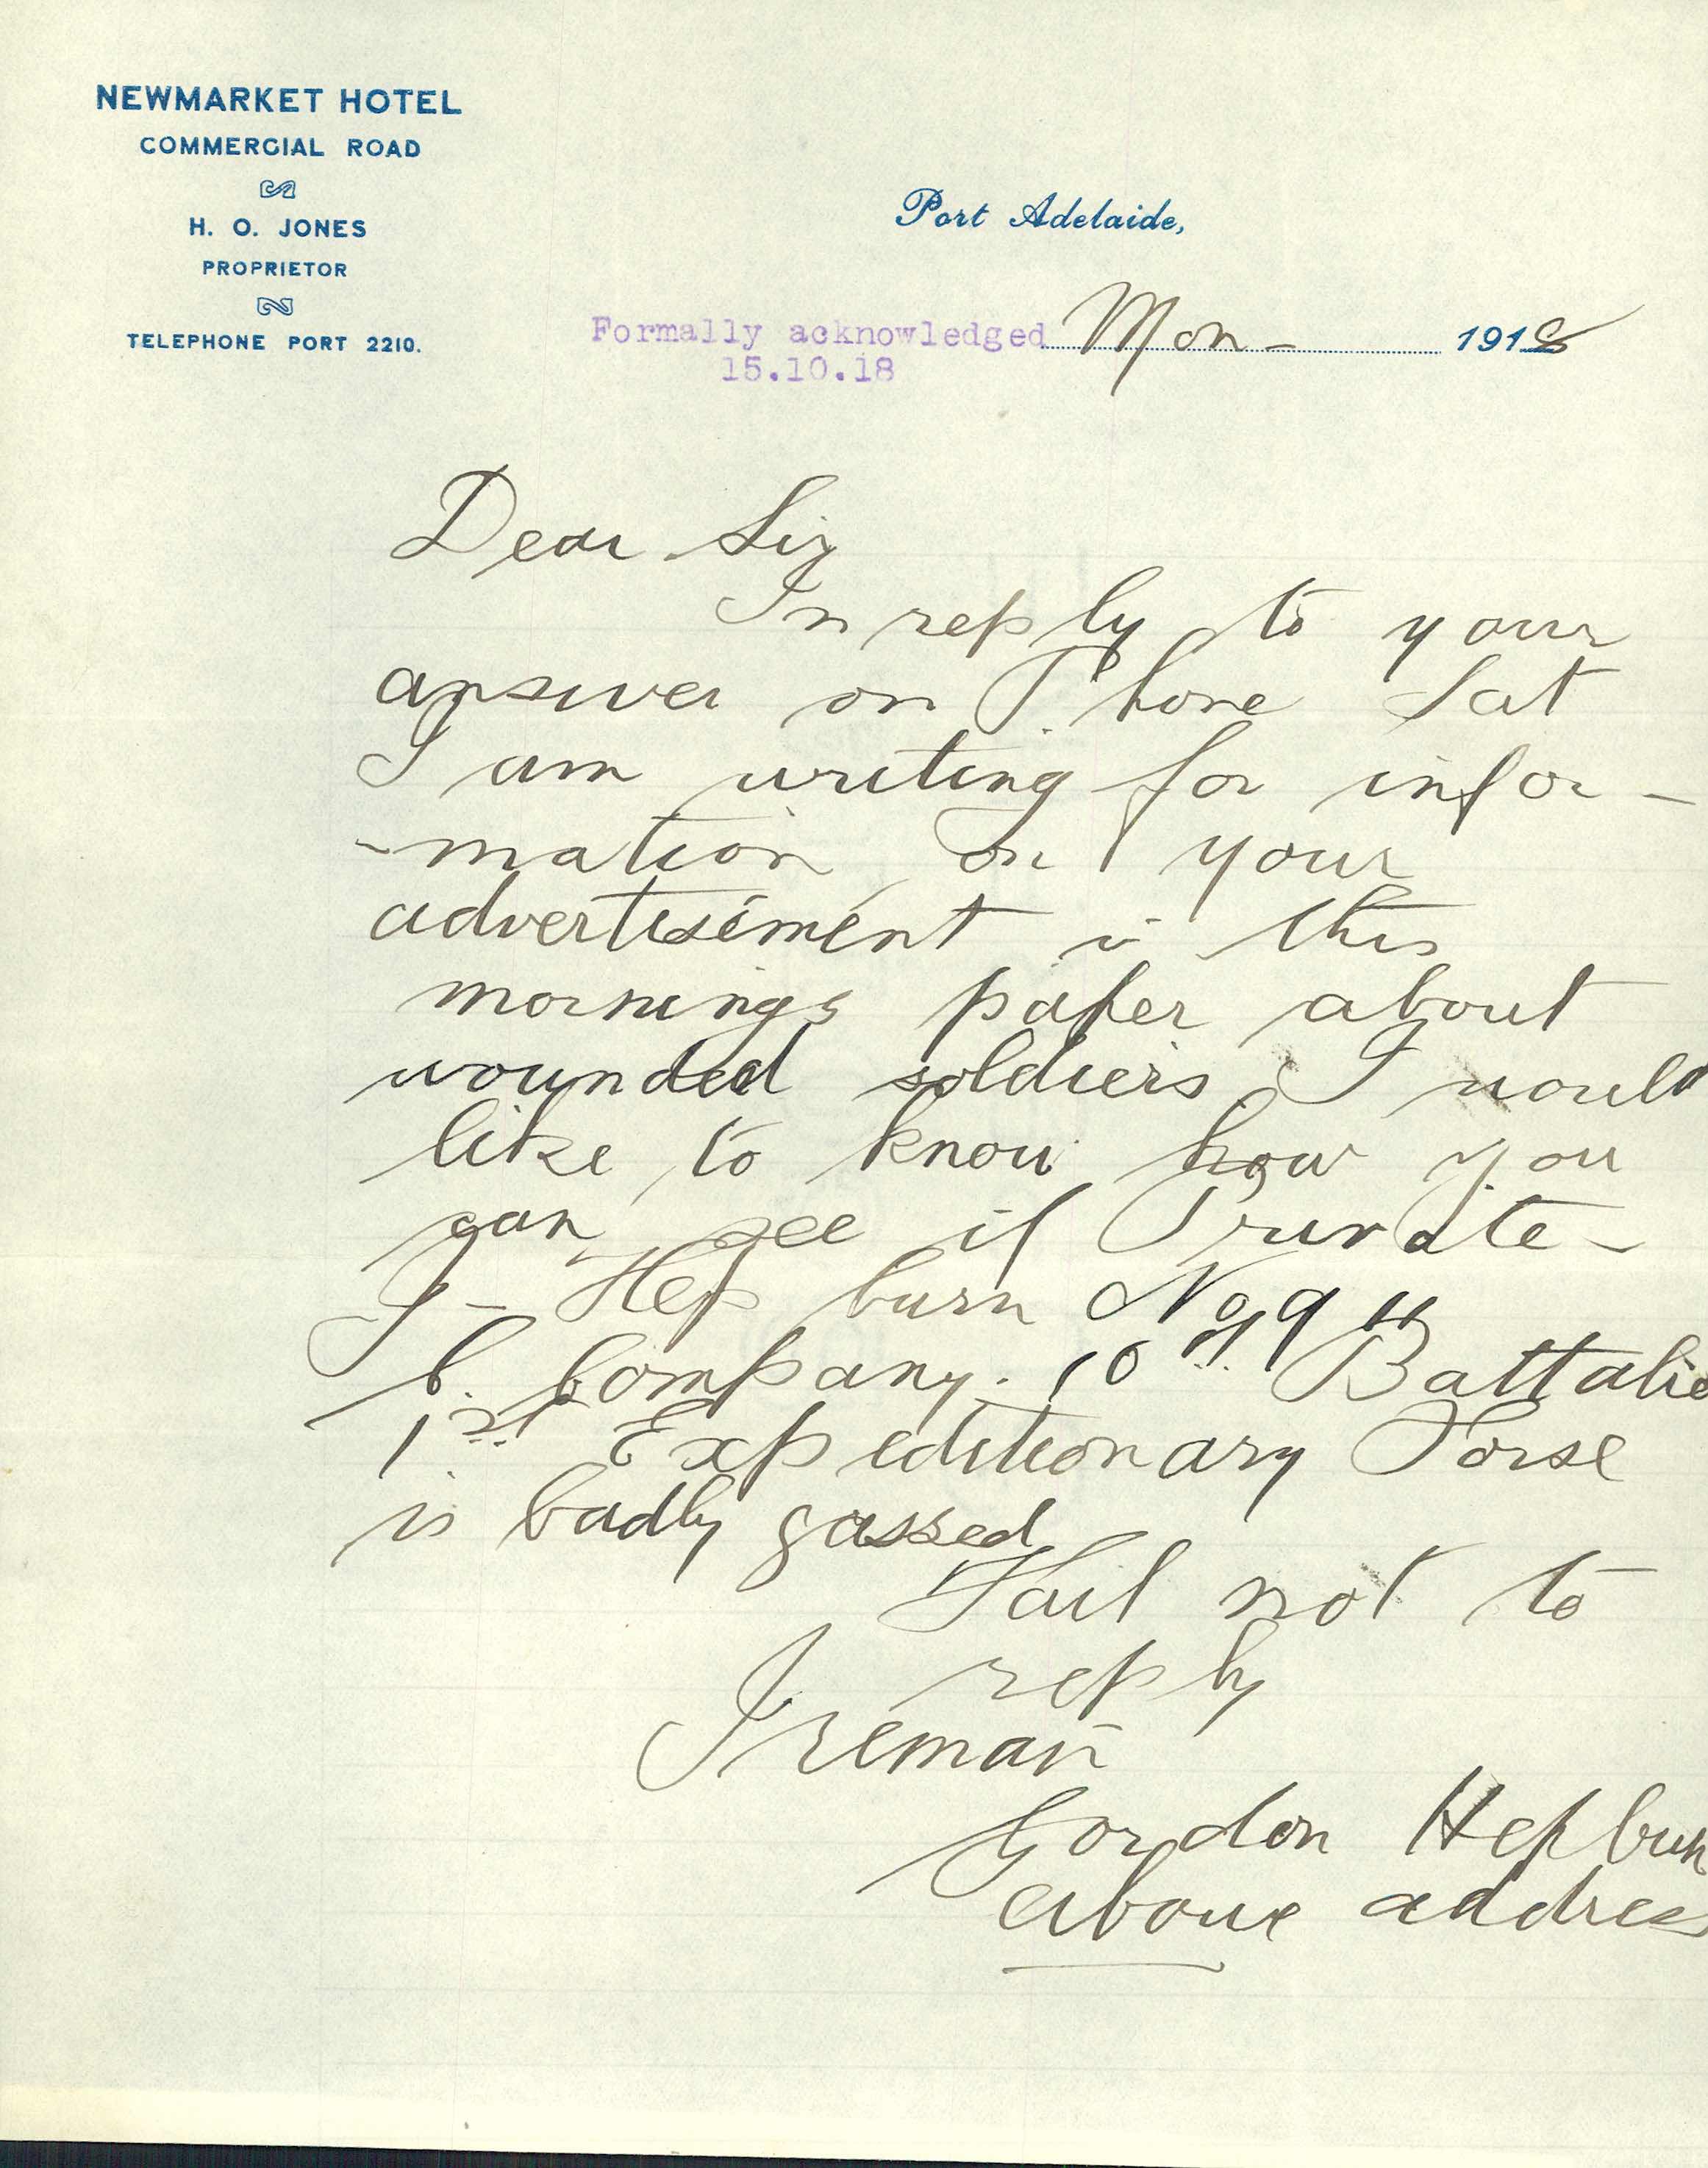 NEWMARKET HOTEL
COMMERCIAL ROAD
H. O. JONES
PROPRIETOR
TELEPHONE PORT 2210.
Port Adelaide,
Formally acknowledged Mon- 1918
15.10.18
Dear Sir
In reply to your
answer on Phone Sat
I am writing for infor-
-mation on your
advertisement i this
mornings paper about
wounded soldiers I would
like to know how you
can see if Private-
J- Hepburn No
C. Company. 10th Battalio
1st Expeditionary Forse
is badly gassed
Fail not to
reply
I remain
Gordon Hepburn
above address